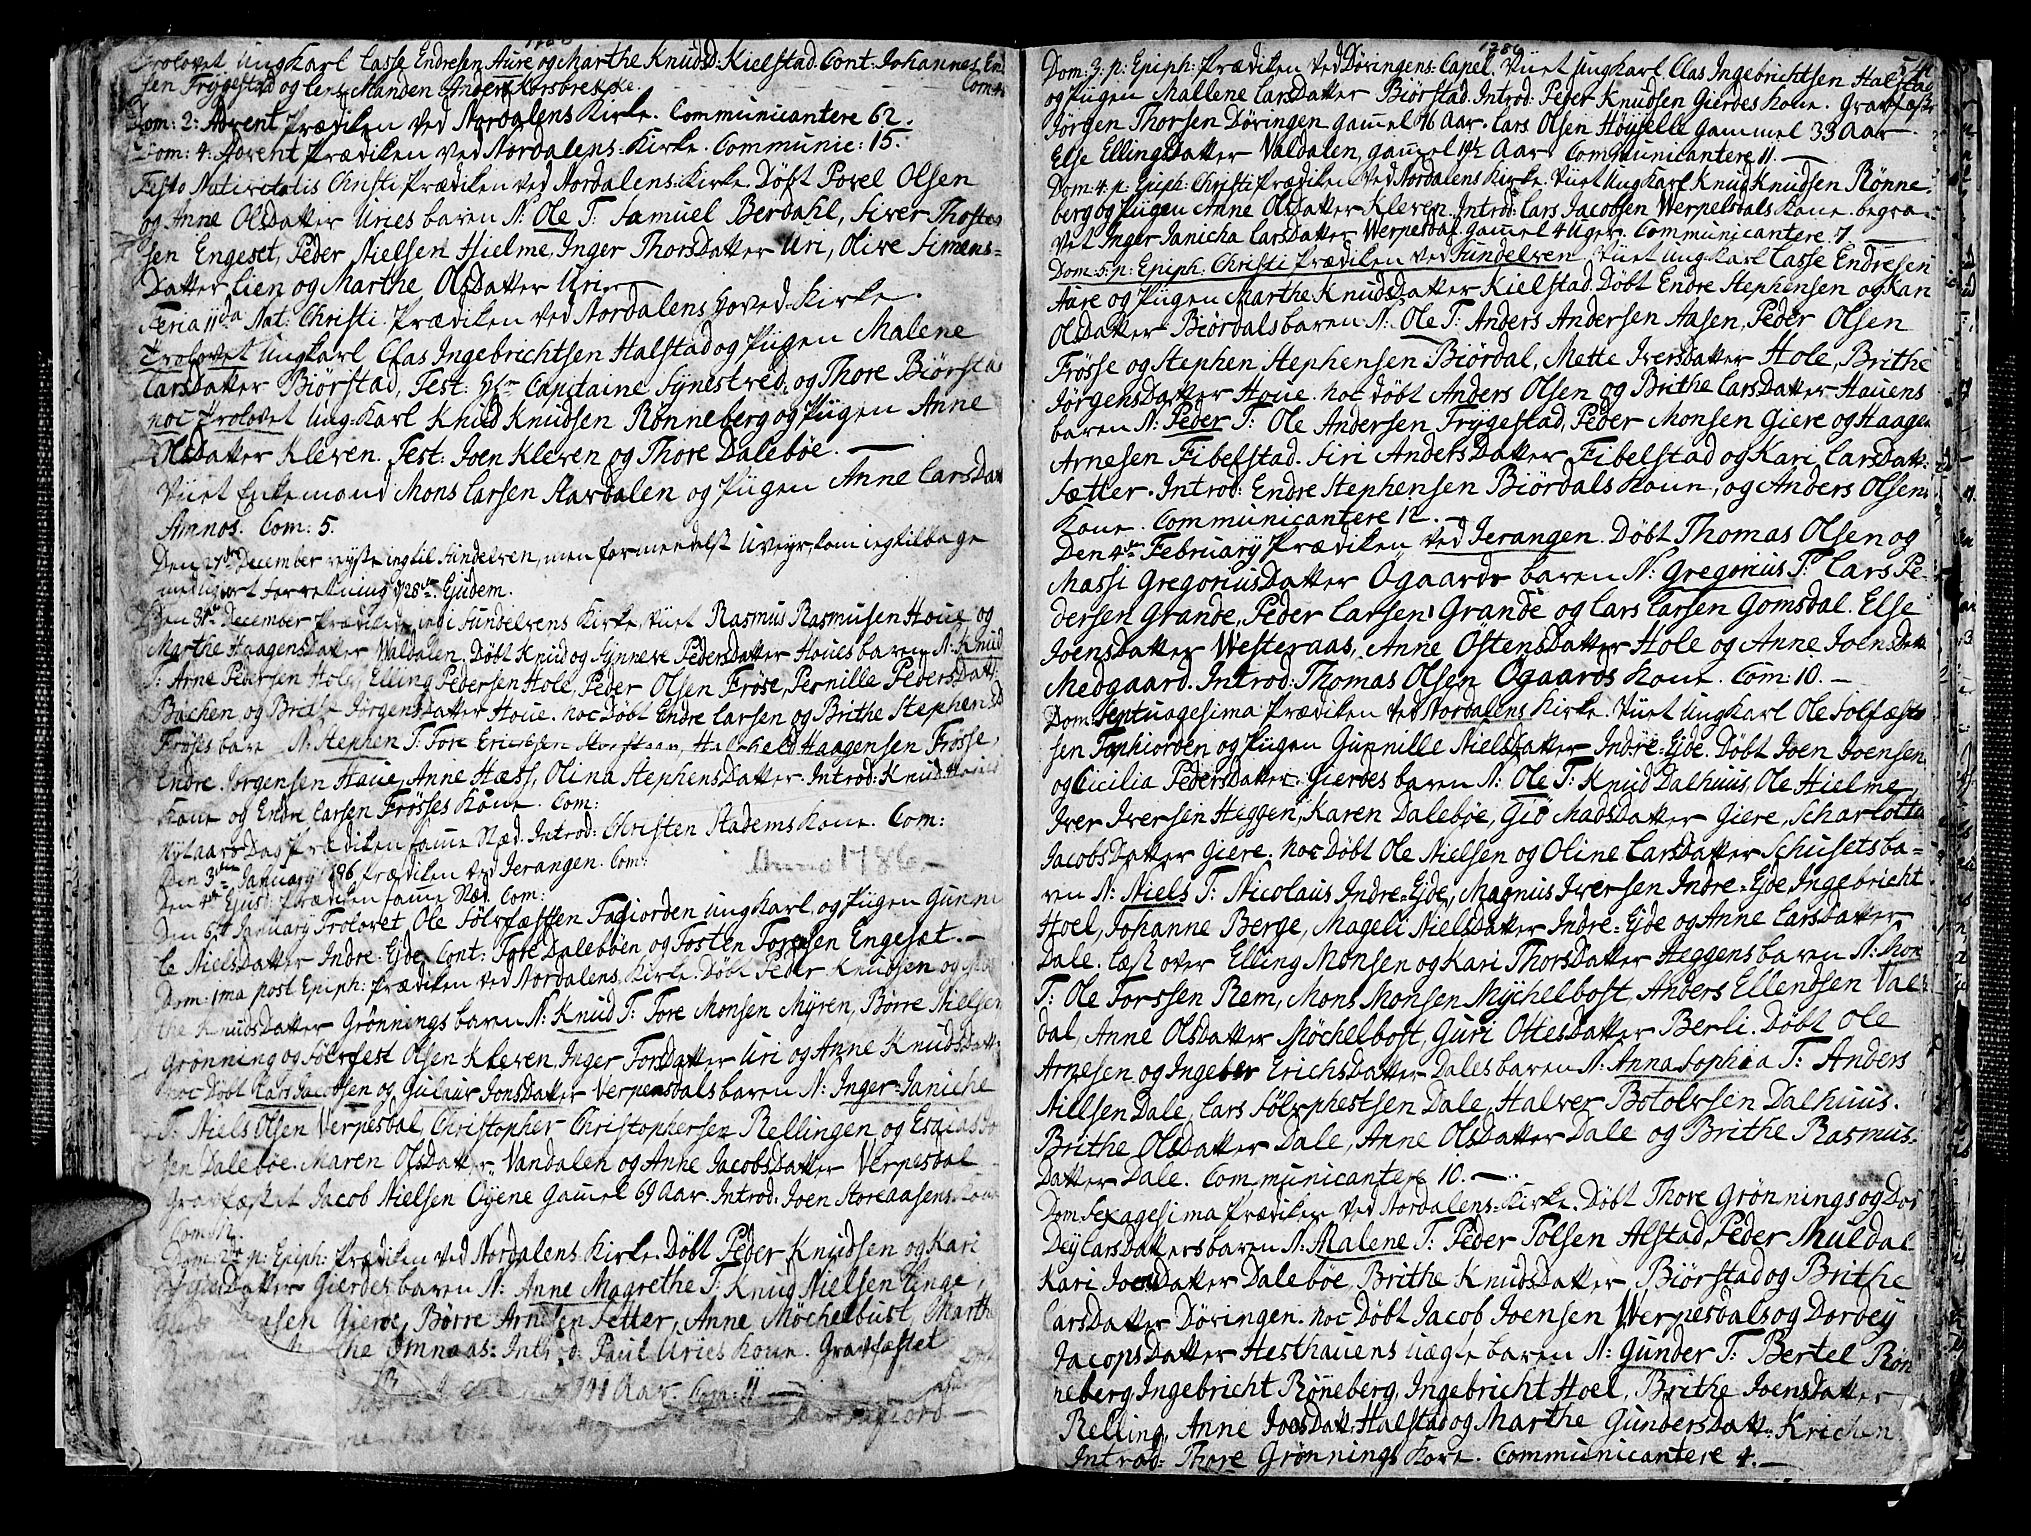 Trolovet Ungkarl Lasse Endresen Aure og Marthe Knudsd: Kielstad. Cont: Johannes En
sen Frygestad og Lens Manden Anders Korsbrekke. Com:
Dom: 2: Advent Prædiken ved Nordalens Kirke. Communicantere 62.
Dom: 4: Advent Prædiken ved Nordalens Kirke. Communic: 15.
Festo Nativitatis Christi Prædiken ved Nordalens Kirke. Døbt Povel Olsen
og Anne Olsdatter Uries baren N: Ole T: Samuel Berdahl, Siver Thosten
sen Engeset, Peder Nielsen Hielme, Inger Thorsdatter Uri, Olive Simens-
datter Lien og Marthe Olsdatter Uri.
Feria IIda Nat: Christi Prædiken ved Nordalens Hoved-Kirke.
Trolovet Ungkarl Clas Ingebrichtsen Halstad og Pigen Malene
Larsdatter Biørstad, Test: Hr Capitaine Synestved, og Thore Biørstad
noc trolovet Ungkarl Knud Knudsen Rønneberg og Pigen Anne
Olsdatter Kleven. Test: Joen Kleven og Thore Dalebøe.
Viiet Enkemand Mons Larsen Stavdalen og Pigen Anne Larsdatt
Amnos. Com: 5.
Den 27de December reyste ieg til Sundelven, men formedelst Uveyr, kom ieg tilbage
med ugiort forretning d 28de Ejusdem.
Den 31te December Prædiken ved Sundelvens Kirke, viiet Rasmus Rasmusen Houe og
Marthe Haagensdatter Waldalen. Døbt Knud og Synneve Pedersdatter Houes baren N: Knud
T: Arne Pedersen Hole, Elling Pedersen Hole, Peder Olsen Frøse, Pernille Pedersdatt
Bachen og Brithe Jørgensdatter Houe. noc Døbt Endre Larsen og Brithe Stephensd
Frøses baren N: Stephen T: Tore Halvkeld Haagensen Frøsse,
Endre Jørgensen Haue, Anne Hæss, Olina Stephensdatter. Introd: Knud
Kone og Endre Larsen Frøsses Kone. Com:
Nytaars Dag Prædiken samme Stæd. Introd: Christen Stadems Kone. Com:
Anno 1786
Den 3die January 1786 Prædiken ved Jerangen. Com:
Den 4de Ejusd: Prædiken samme Stæd. Com:
Den 6te January Trolovet Ole Sølvfæstsen Tafiorden Ungkarl og Pigen Gunni
le Nielsdatter Indre-Ejde, Cont: Tore Dalebøen og Tosten Toresen Engesæt.
Dom: 1ma post Epiph: Prædiken ved Nordalens Kirke. Døbt Peder Knudsen og
the Knudsdatter Grønnings baren N: Knud T: Tore Monsen Myren, Børre Nielsen
Grønning og Sølvfest Olsen Kleven, Inger Torsdatter Uri og Anne Knudsdatt:
noc Døbt Lars Jacobsen og Jonsdatter Verpesdals baren N: Inger-Janiche
T: Niels Olsen Verpesdal, Christopher Christophersen Rellingen og Esaias
sen Dalebøe. Maren Olsdatter Vandalen og Anne Jacobsdatter Verpesdal
Gravfæstet Jacob Nielsen Øyene gamel 69 Aar. Introd: Joen Storeaasens
Com: 12.
Dom: 2da p: Epiph: Prædiken ved Nordalens Kirke. Døbt Peder Knudsen og Kari
datter Gierdes baren N: Anne Magrethe T: Knud Nielsen Linge,
sen Gierde, Børre Arnesen Setter, Anne Møchelbust, Marth
Omnaas: Introd: Paul Uries Kone. Gravfæstet
Aar. Com: 11
1786
Dom: 3: p: Epiph: Prædiken ved Døringens Capel. Viiet Ungkarl Clas Ingebrichtsen Halstad
og Pigen Mallene Larsdatter Biørstad. Introd: Peder Knudsen Gierdes Kone. Gravfæst
Jørgen Thorsen Døringen gamel 76 Aar. Lars Olsen Høyselle gammel 33 Aar
Else Ellingsdatter Valdalen, gamel 19½ Aar. Communicantere 11.
Dom: 4: p: Epiph: Christi Prædiken ved Nordalens Kirke. Viiet Ungkarl Knud Knudsen Rønne-
berg og Pigen Anne Olsdatter Kleven. Introd: Lars Jacobsen Werpelsdals Kone. begra-
vet Inger Janicha Larsdatter Werpesdal gamel 4 Uger. Communicantere 7
Dom: 5: p: Epiph: Christi Prædiken ved Sundelven Viiet Ungkarl Lasse Endresen
Aure og Pigen Marthe Knudsdatter Kielstad. Døbt Endre Stephensen og Kari
Olsdatter Biørdals baren N: Ole T: Anders Andersen Aasen, Peder Olsen
Frøsse og Stephen Stephensen Biørdal, Mette Iversdatter Hole, Brithe
Jørgensdatter Houe. noc døbt Anders Olsen og Brithe Larsdatter Hauens
baren N: Peder T: Ole Andersen Frygestad, Peder Monsen Giere og Haagen
Arnesen Fibelstad. Siri Andersdatter Fibelstad og Kari Larsdatt:
Sætter. Introd: Endre Stephensen Biørdals Kone, og Anders Olsens
Kone. Communicantere 12.
Den 4de February Prædiken ved Jerangen. Døbt Thomas Olsen og
Massi Gregoriusdatter Ogaards baren N: Gregorius T: Lars Pe-
dersen Grande, Peder Larsen Grande og Lars Larsen Gomsdal. Else
Joensdatter Westeraas, Anne Østensdatter Hole og Anne Joensdatt
Medgaard. Introd: Thomas Olsen Ogaards Kone. Com: 10.
Dom: Septuagesima Prædiken ved Nordalens Kirke. Viiet Ungkarl Ole Solfæst-
sen Taphiorden og Pigen Gunnille Nielsdatter Indre-Ejde. Døbt Joen Joensen
og Cicilia Pedersdatter Gierdes baren N: Ole T: Knud Dalhuus, Ole Hielme,
Iver Iversen Heggen, Karen Dalebøe, Giø Madsdatter Giere, Scharlotta
Jacobsdatter Giere. noc Døbt Ole Nielsen og Oline Larsdatter Schusetsba-
ren N: Niels T: Nicolaus Indre-Ejde, Magnus Iversen Indre-Ejde Ingebricht
Hoel, Johanne Berge, Mageli Nielsdatter Indre-Ejde og Anne Larsdatter
Dale. Læst over Elling Monsen og Kari Thorsdatter Heggens baren N: Thor
T: Ole Torssen Rem, Mons Monsen Mychelbost, Anders Ellendsen Val-
dal, Anne Olsdatter Møchelbost, Guri Ottesdatter Berli. Døbt Ole
Arnesen og Ingeber Erichsdatter Dales baren N: Anna Sophia T: Anders
Nielsen Dale, Lars Sølvphestsen Dale, Halver Botolvsen Dalhuus.
Brithe Olsdatter Dale, Anne Olsdatter Dale og Brithe Rasmus-
datter Dale. Communicantere 10.
Dom: Sexagesima Prædiken ved Nordalens Kirke. Døbt Thore Grønnings og Dor
Dey Larsdatters baren N: Malene T: Peder Tolsen Alstad, Peder Muldal
Kari Joensdatter Dalebøe, Brithe Knudsdatter Biørstad og Brithe
Larsdatter Døringen. noc Døbt Jacob Joensen Werpesdals og Dordey
Jacopsdatter Hesthauens uægte baren N: Gunder T: Bertel Røn
neberg, Ingebricht Røneberg, Ingebricht Hoel, Brithe Joensdatter
Relling, Anne Joesdatt: Halstad og Marthe Gundersdatt: Krichen.
Introd: Thore Grønnings Kone. Communicantere 4.